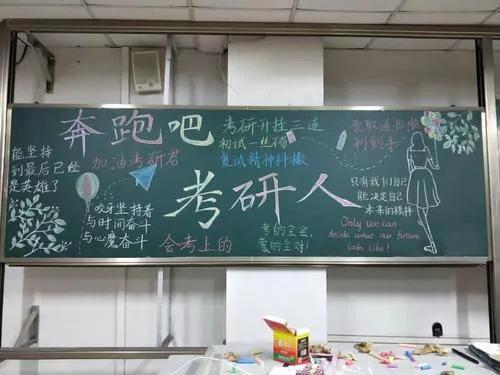 奔跑吧
考研人
能坚持
到最后已经
是英雄了
加油考研君
咬牙坚持着
与时间奋斗
与心魔奋斗
会考上的
考研开挂三连
初试一丝不苟
复试精神抖擞
录取通书嗽
利到手
考的全会
蒙的全对!
只有我们自己
能决定自己
未来的模样
Only we can
decide what our future
looks like!